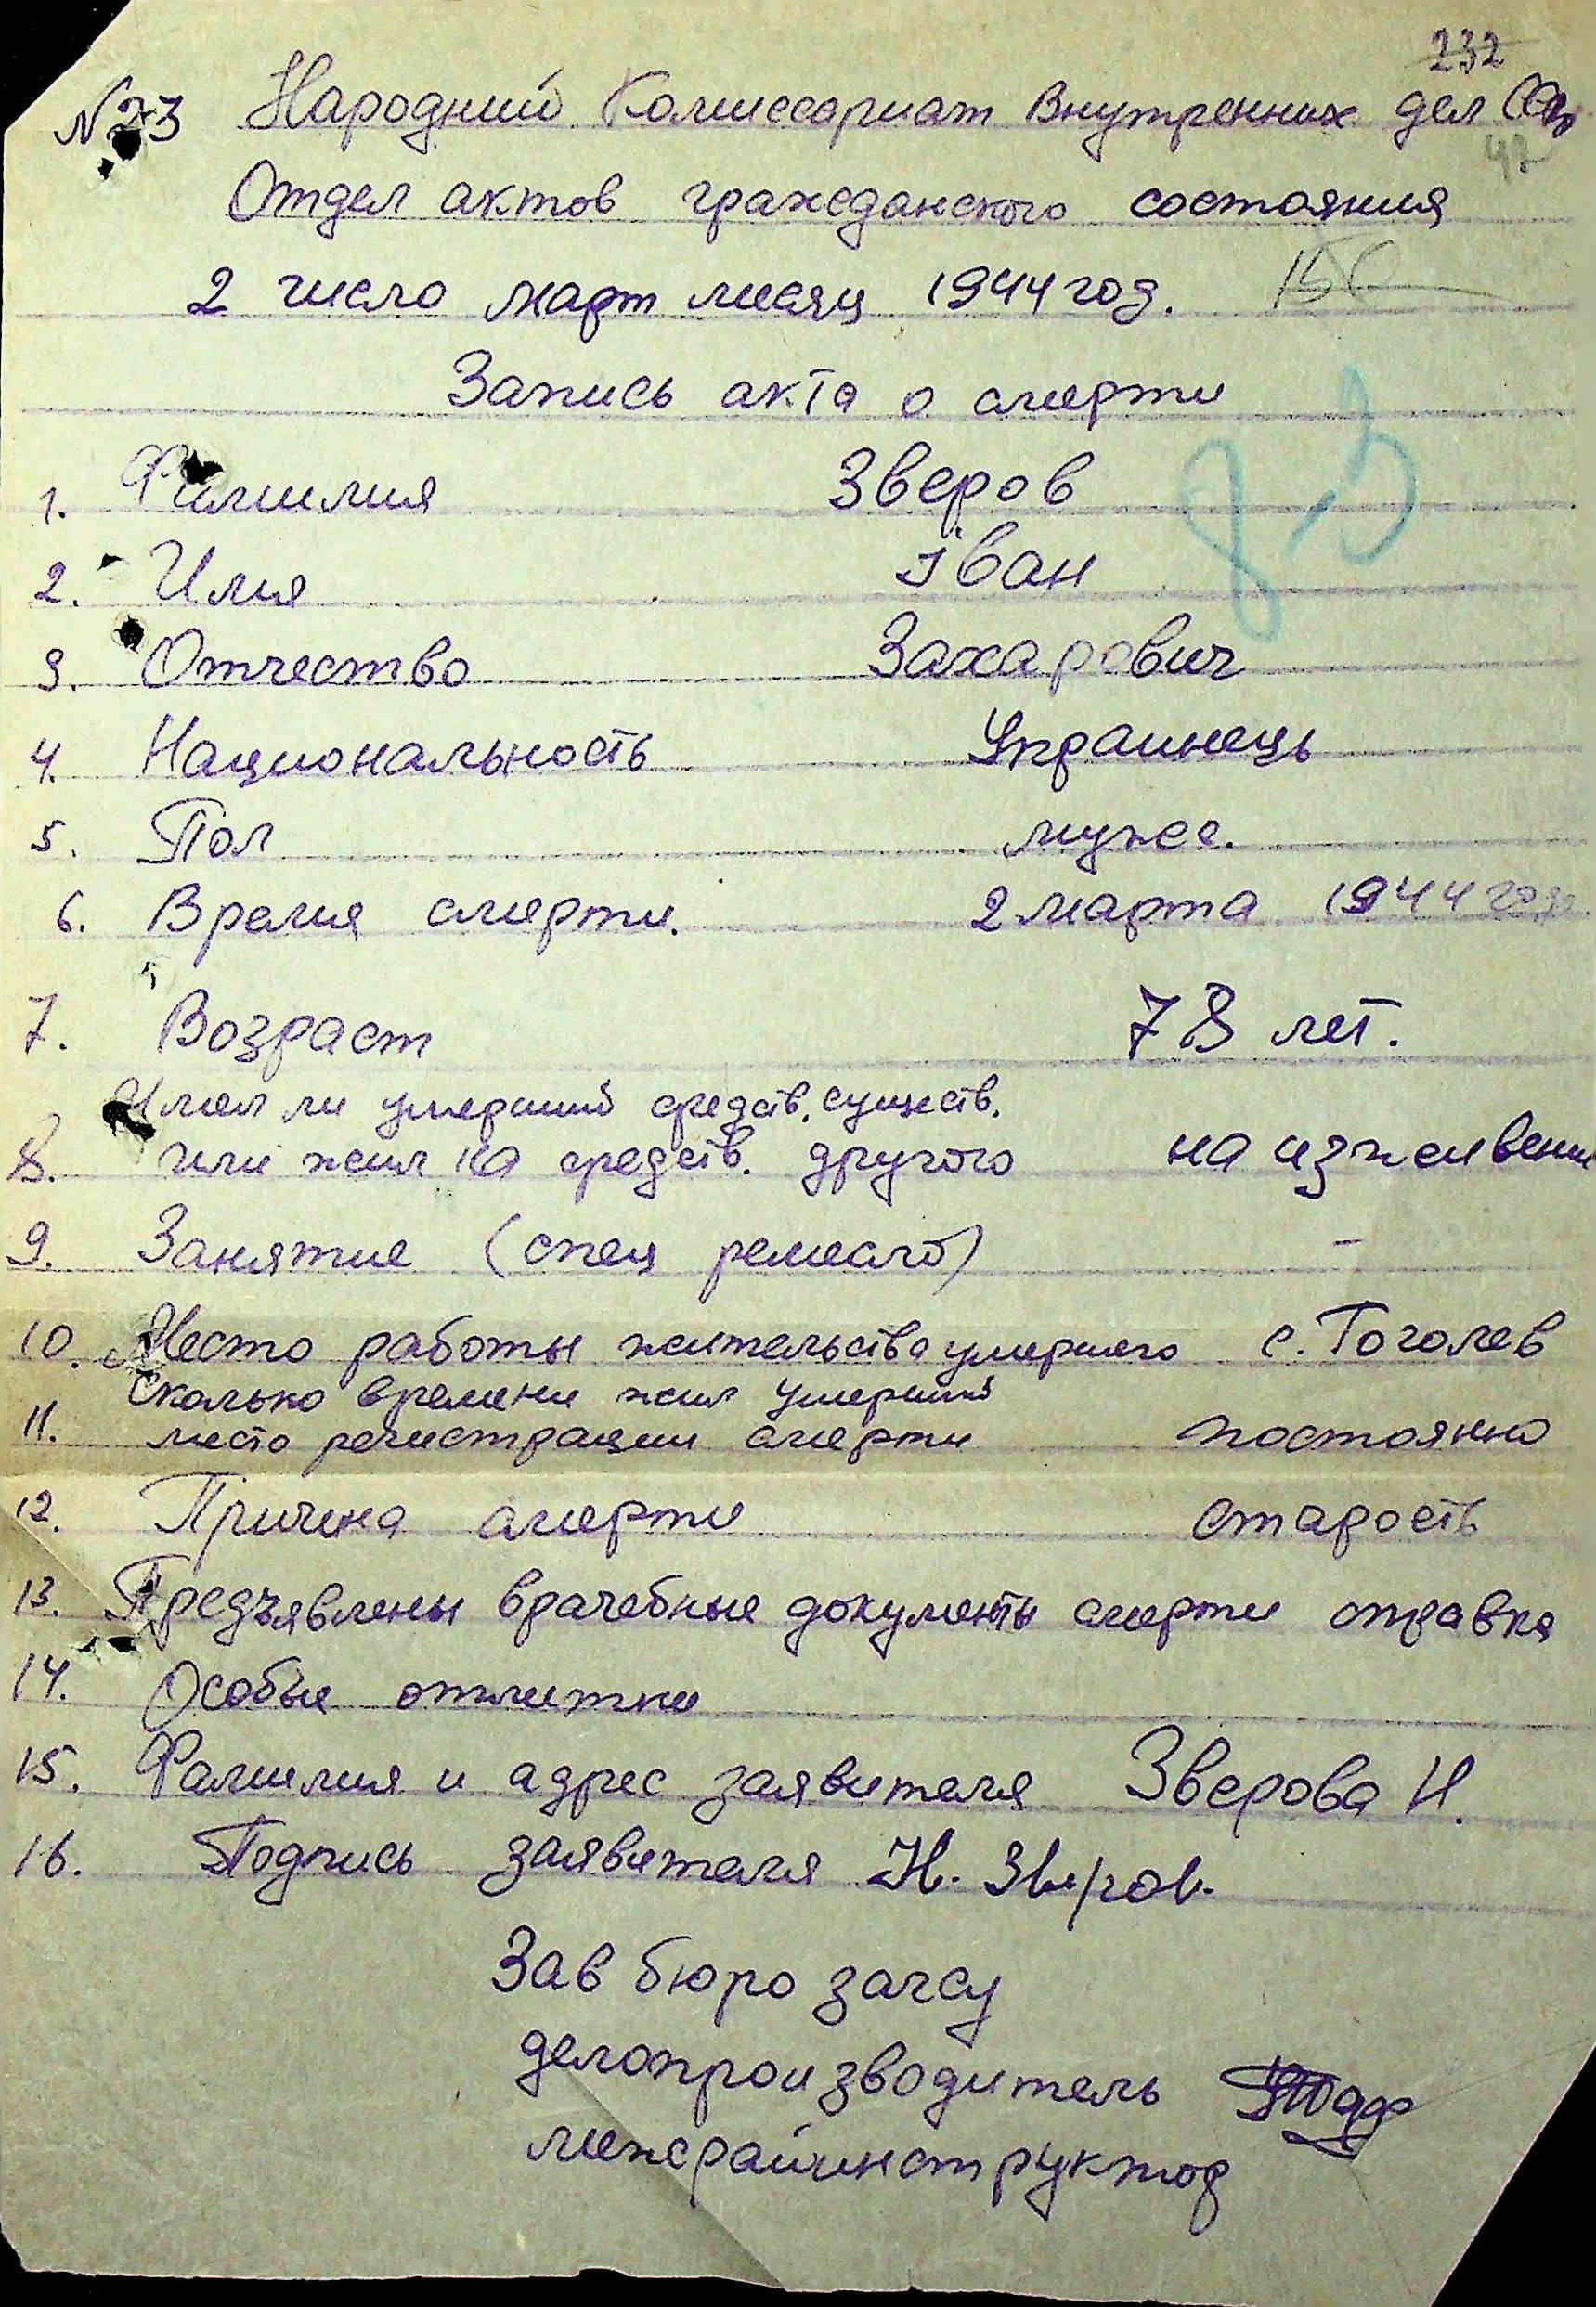 232
N 23 Народний Комиссариат Внутренних дел
42
Отдел актов гражданского состояния
2 число март месяц 1944 год.
Запись акта о смерти
1. Фамилия Зверов
2. Имя Іван
3. Отчество Захарович
4. Национальность Украинець
5. Пол мужс.
6. Время смерти. 2 марта 1944 год
7. Возраст 78 лет.
Имел ли умерший средств. существ.
8. или жил на средств. другого на изживении
9. Занятие (спец ремесло) –
10. Место работы жительства умершего с. Гоголев
Сколько времени жил умерший
11. место регистрации смерти постоянно
12. Причина смерти старость
13. Предъявлены врачебные документы смерти справка
14. Особые отметки
15. Фамилия и адрес заявителя Зверова Н.
16. Подпись заявителя Н. Зверов.
Зав бюро загсу
делопроизводитель
межрайинструктор